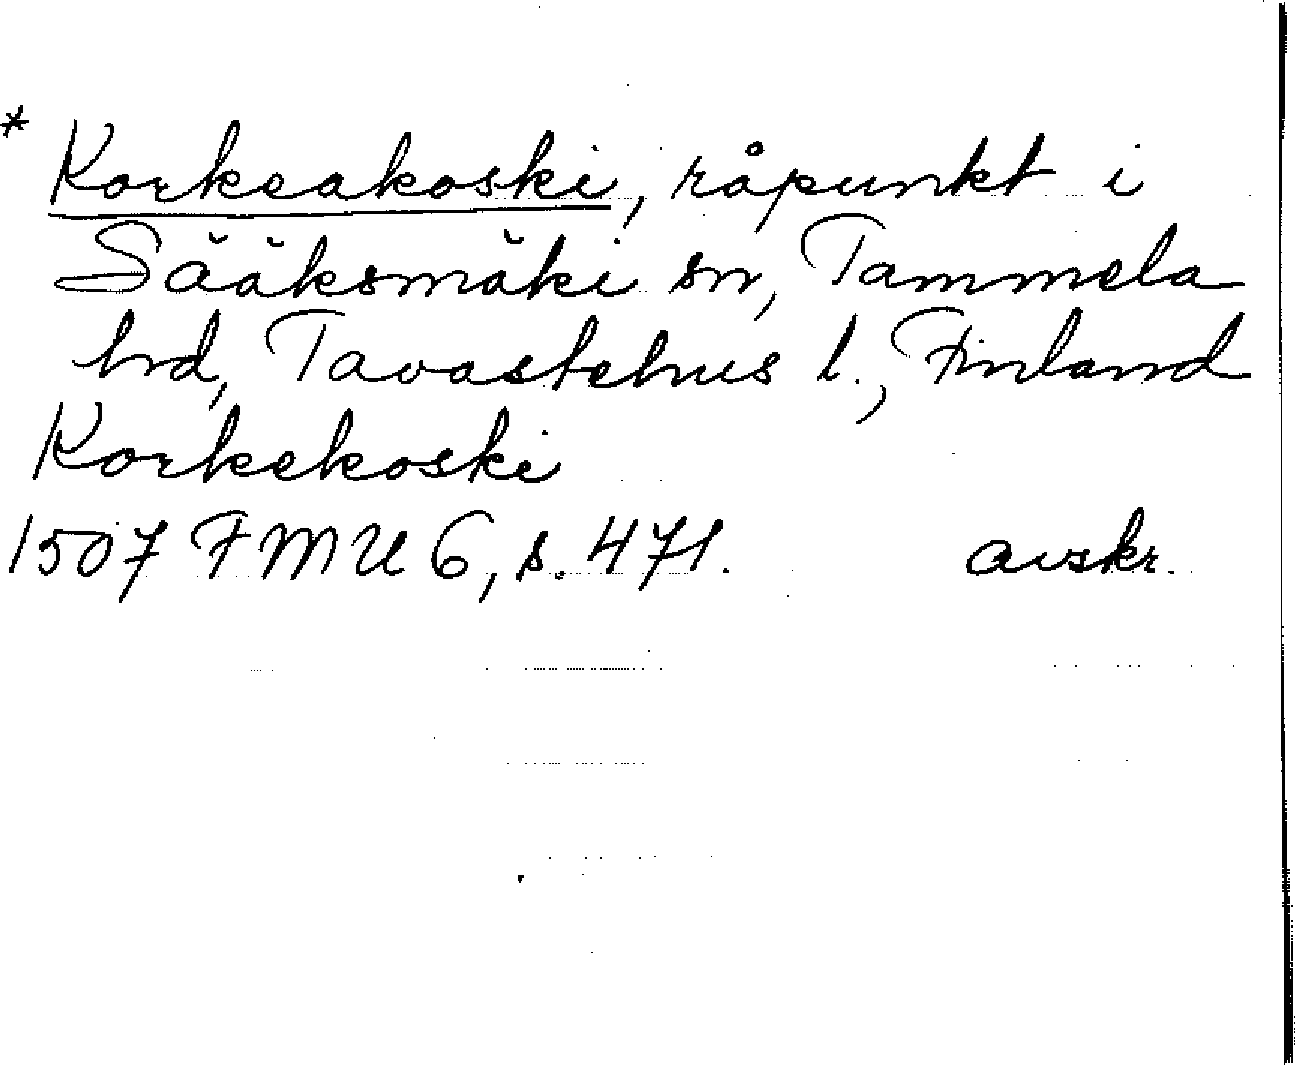 * Korkeakoski, råpunkt i
Sääksmäki sn, Tammela
hd, Tavastehus l., Finland
Korkekoski
1507 FMU 6, s. 471. avskr.